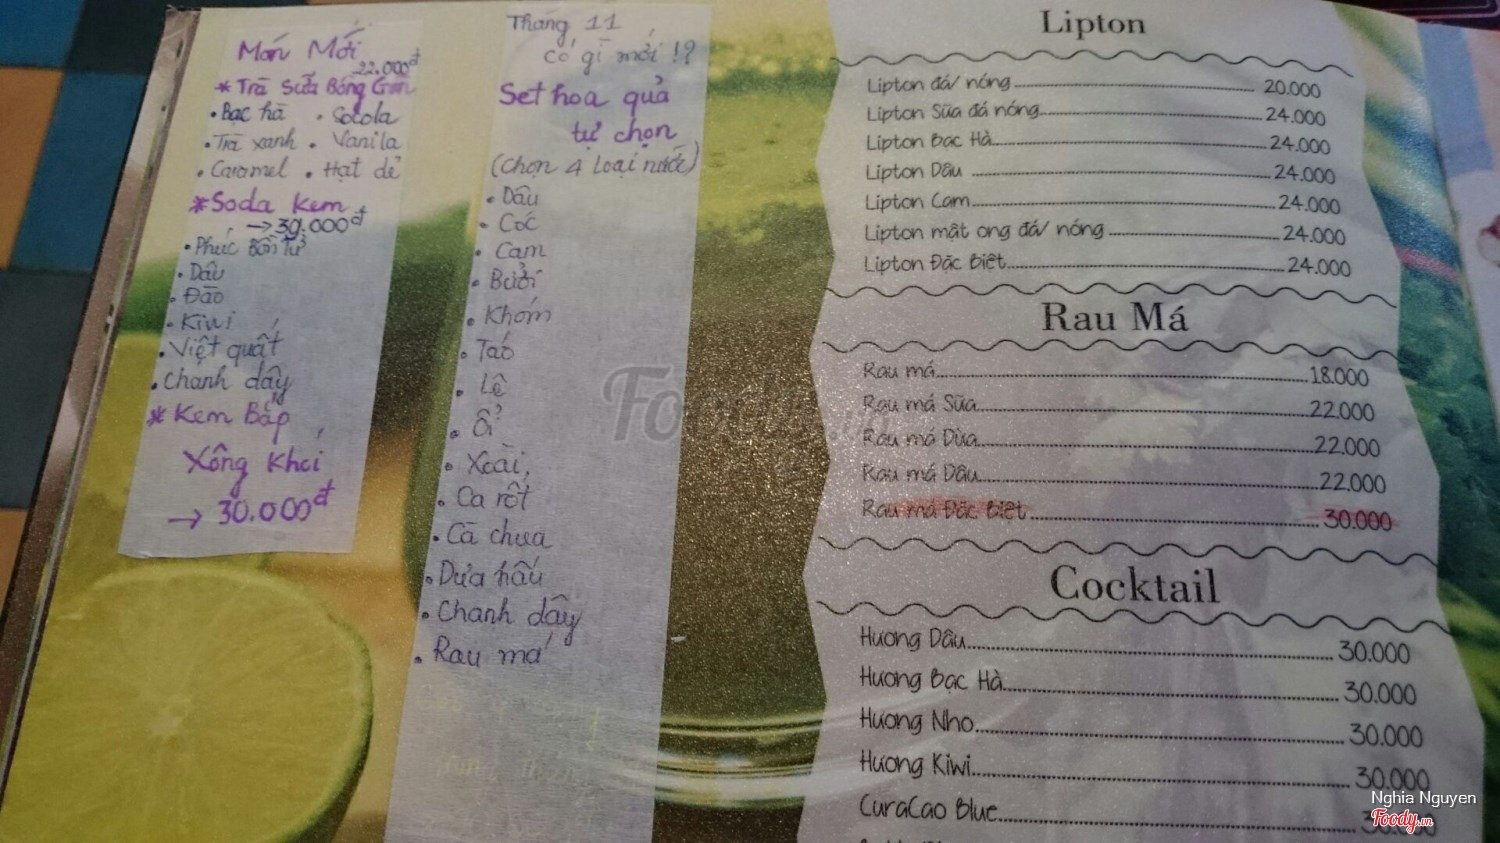 Món Mới
22.000đ
* Trà Sữa Bông Gòn
• Bạc hà • Socola
• Trà xanh • Vanila
• Caramel • Hạt dẻ
* Soda Kem
→ 30.000đ
• Phúc Bồn Tử
• Dâu
• Đào
• Kiwi
• Việt quất
• Chanh dây
* Kem Bắp
Xông Khói
→ 30.000đ
Tháng 11
có gì mới !?
Set hoa quả
tự chọn
(Chọn 4 loại nước)
• Dâu
• Cóc
• Cam
• Bưởi
• Khóm
• Táo
• Lê
• Ổi
• Xoài
• Ca rốt
• Cà chua
• Dưa hấu
• Chanh dây
• Rau má
Lipton
Lipton đá/ nóng 20.000
Lipton Sữa đá nóng 24.000
Lipton Bạc Hà 24.000
Lipton Dâu 24.000
Lipton Cam 24.000
Lipton mật ong đá/ nóng 24.000
Lipton Đặc Biệt 24.000
Rau Má
Rau má 18.000
Rau má Sữa 22.000
Rau má Dừa 22.000
Rau má Dâu 22.000
Rau má Đặc Biệt 30.000
Cocktail
Hương Dâu 30.000
Hương Bạc Hà 30.000
Hương Nho 30.000
Hương Kiwi 30.000
CuraCao Blue
Foody.vn
Nghia Nguyen
Foody.vn